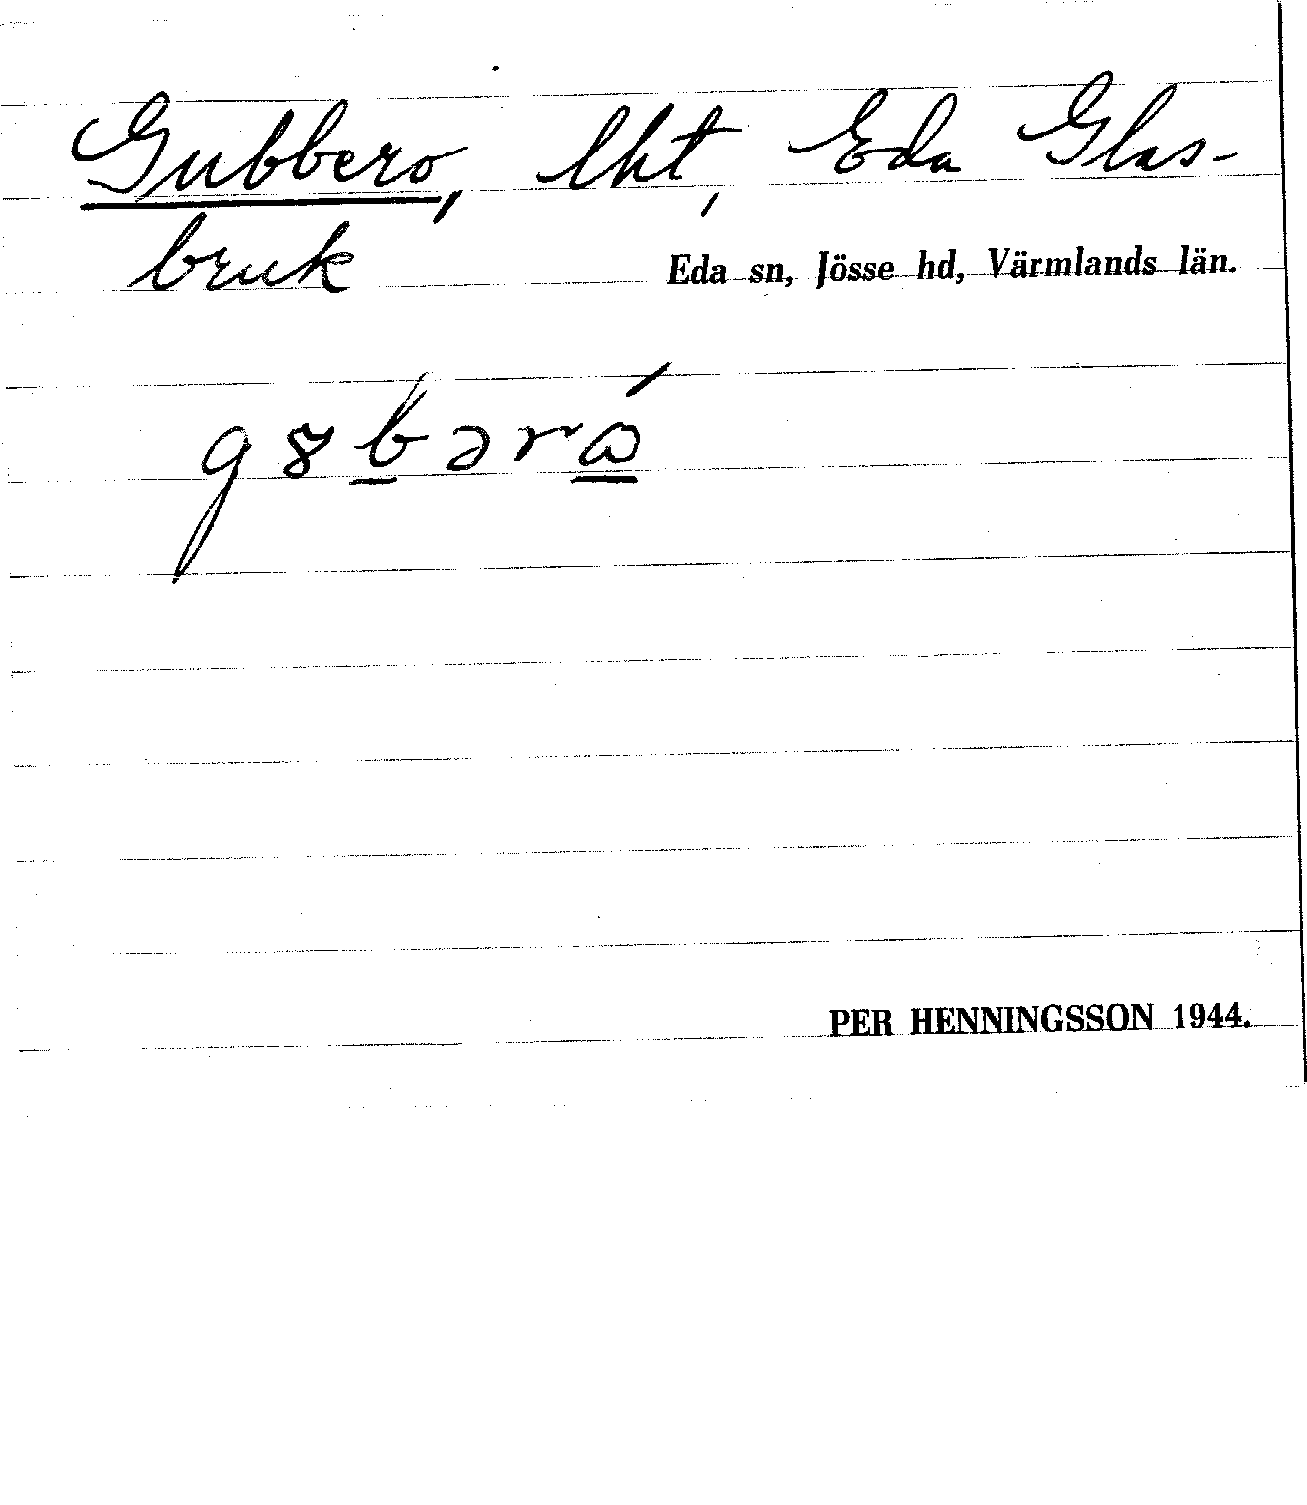 Gubbero, lht, Eda Glas-
bruk
Eda sn, Jösse hd, Värmlands län.
PER HENNINGSSON 1944.